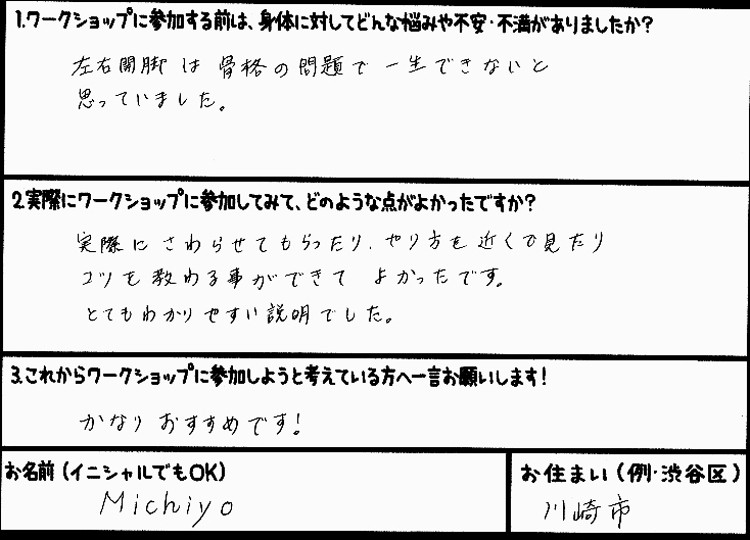 1.ワークショップに参加する前は、身体に対してどんな悩みや不安・不満がありましたか?
左右開脚は骨格の問題で一生できないと
思っていました。
2.実際にワークショップに参加してみて、どのような点がよかったですか?
実際にさわらせてもらったり、やり方を近くで見たり
コツを教わる事ができてよかったです。
とてもわかりやすい説明でした。
3.これからワークショップに参加しようと考えている方へ一言お願いします!
かなりおすすめです!
お名前(イニシャルでもOK)
Michiyo
お住まい(例・渋谷区)
川崎市